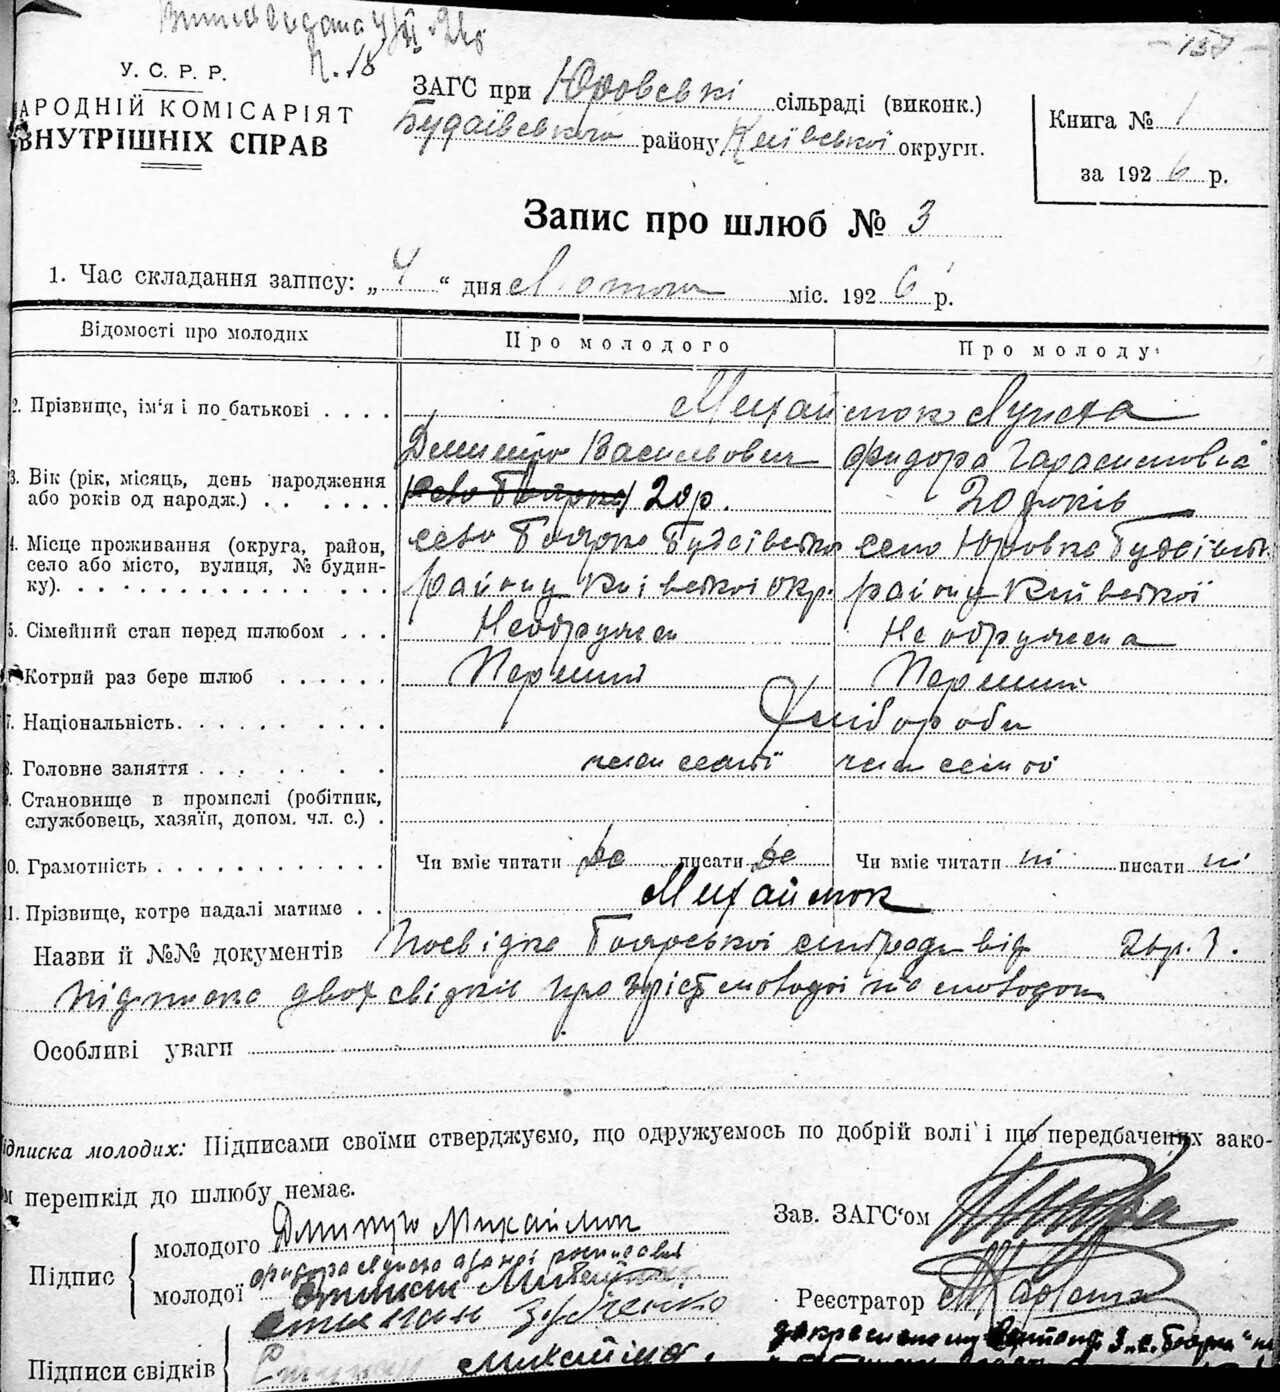 п. 18
137
У. С. Р. Р.
АРОДНІЙ КОМІСАРІЯТ
ВНУТРІШНІХ СПРАВ
ЗАГС при Юровські сільраді (виконк.)
Будаївського району Київської округи.
Книга № 1
за 1926 р.
Запис про шлюб № 3
1. Час складання запису: „4“ дня Лютого міс. 1926 р.
Відомості про молодих
Про молодого
Про молоду
2. Прізвище, ім'я і по батькові . . . .
Михаймок Лучета
Дмитро Васильович
Фидора Гарасимовна
3. Вік (рік, місяць, день народження
або років од народж.) . . . . . .
20 р.
20 років
4. Місце проживання (округа, район,
село або місто, вулиця, № будин-
ку). . . . . . . . . . . . . . .
село Боярка Будаївсько
району Київської окр.
село Юровка Будаївськ
району Київської
5. Сімейний стан перед шлюбом . . .
Необружен
Необружена
Котрий раз бере шлюб . . . . . .
Перший
Перший
7. Національність. . . . . . . . . .
Хлібороби
8. Головне заняття . . . . . . . .
член семьї
член семьї
9. Становище в промислі (робітник,
службовець, хазяїн, допом. чл. с.) .
10. Грамотність . . . . . . . . . . .
Чи вміє читати да писати да
Чи вміє читати ні писати ні
11. Прізвище, котре надалі матиме . .
Михаймок
Назви й №№ документів Посвідка Боярської сільради від
Підписка двох свідків про зріст молодої та молодого
Особливі уваги
ідписка молодих: Підписами своїми стверджуємо, що одружуємось по добрій волі і що передбачених зако-
м перешкід до шлюбу немає.
Підпис
молодого Дмитро Михаймок
молодої
Степан Зубченко
Підписи свідків
Зав. ЗАГС'ом
Реєстратор